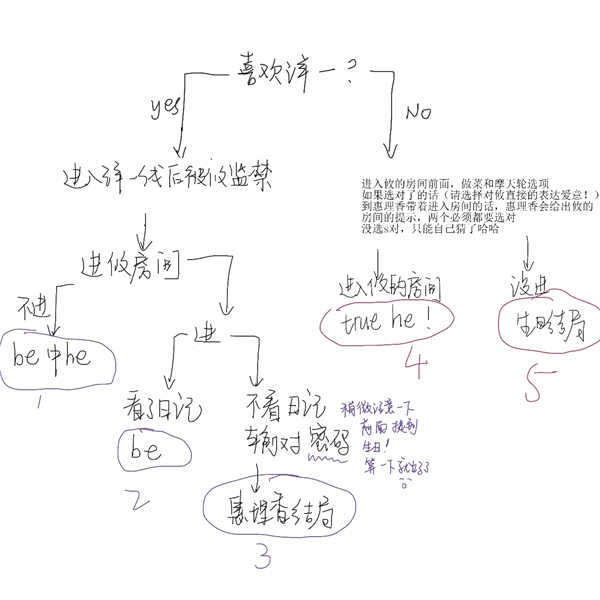 喜欢洋一?
yes
NO
进入洋一线后被攸监禁
进入攸的房间前面,做菜和摩天轮选项
如果选对了的话(请选择对攸直接的表达爱意!)
到惠理香带着进入房间的话,惠理香会给出攸的
房间的提示,两个必须都要选对
没选s对,只能自己猜了哈哈
进攸房间
不进
be中he
1
进
看了日记
be
2
不看日记
输对密码
稍微注意一下
前面提到
生日!
算一下就出了
惠理香结局
3
进入攸的房间
true he!
4
没进
生日结局
5